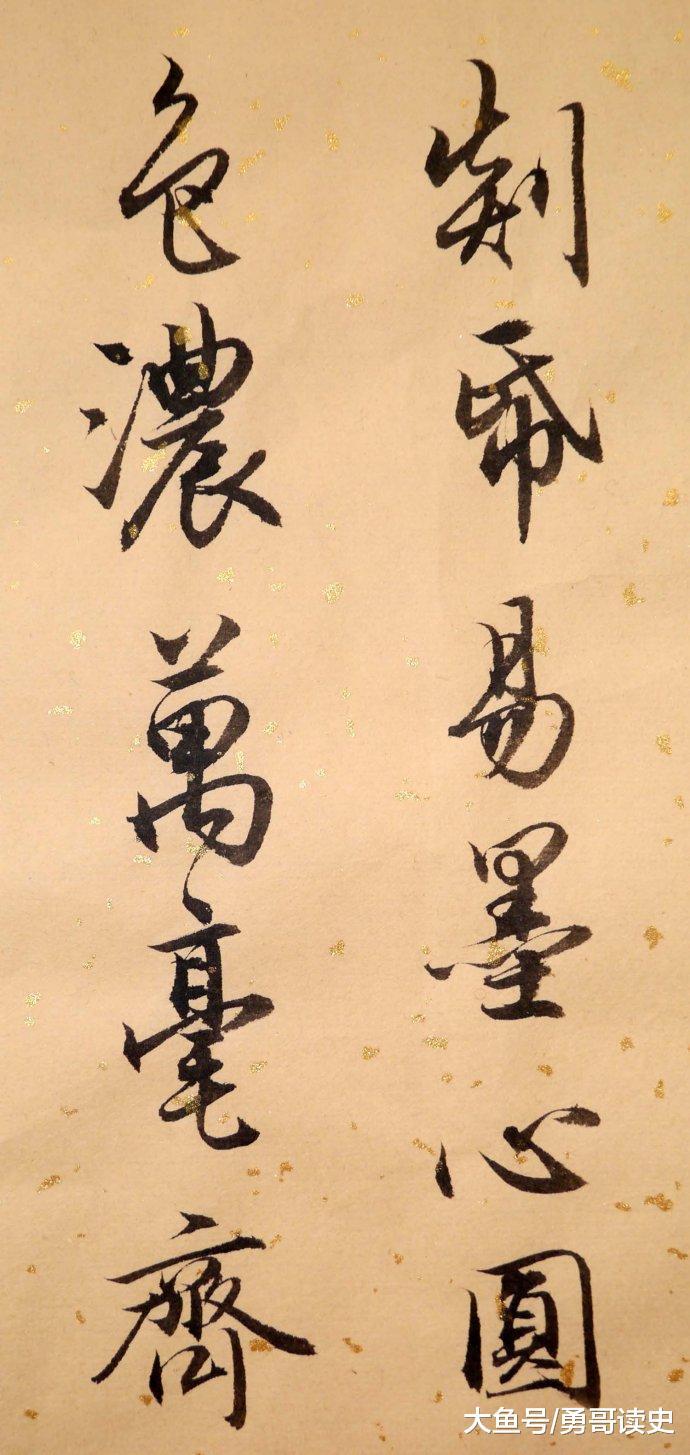 剡帋易墨心圓
色濃萬毫齊
大鱼号/勇哥读史